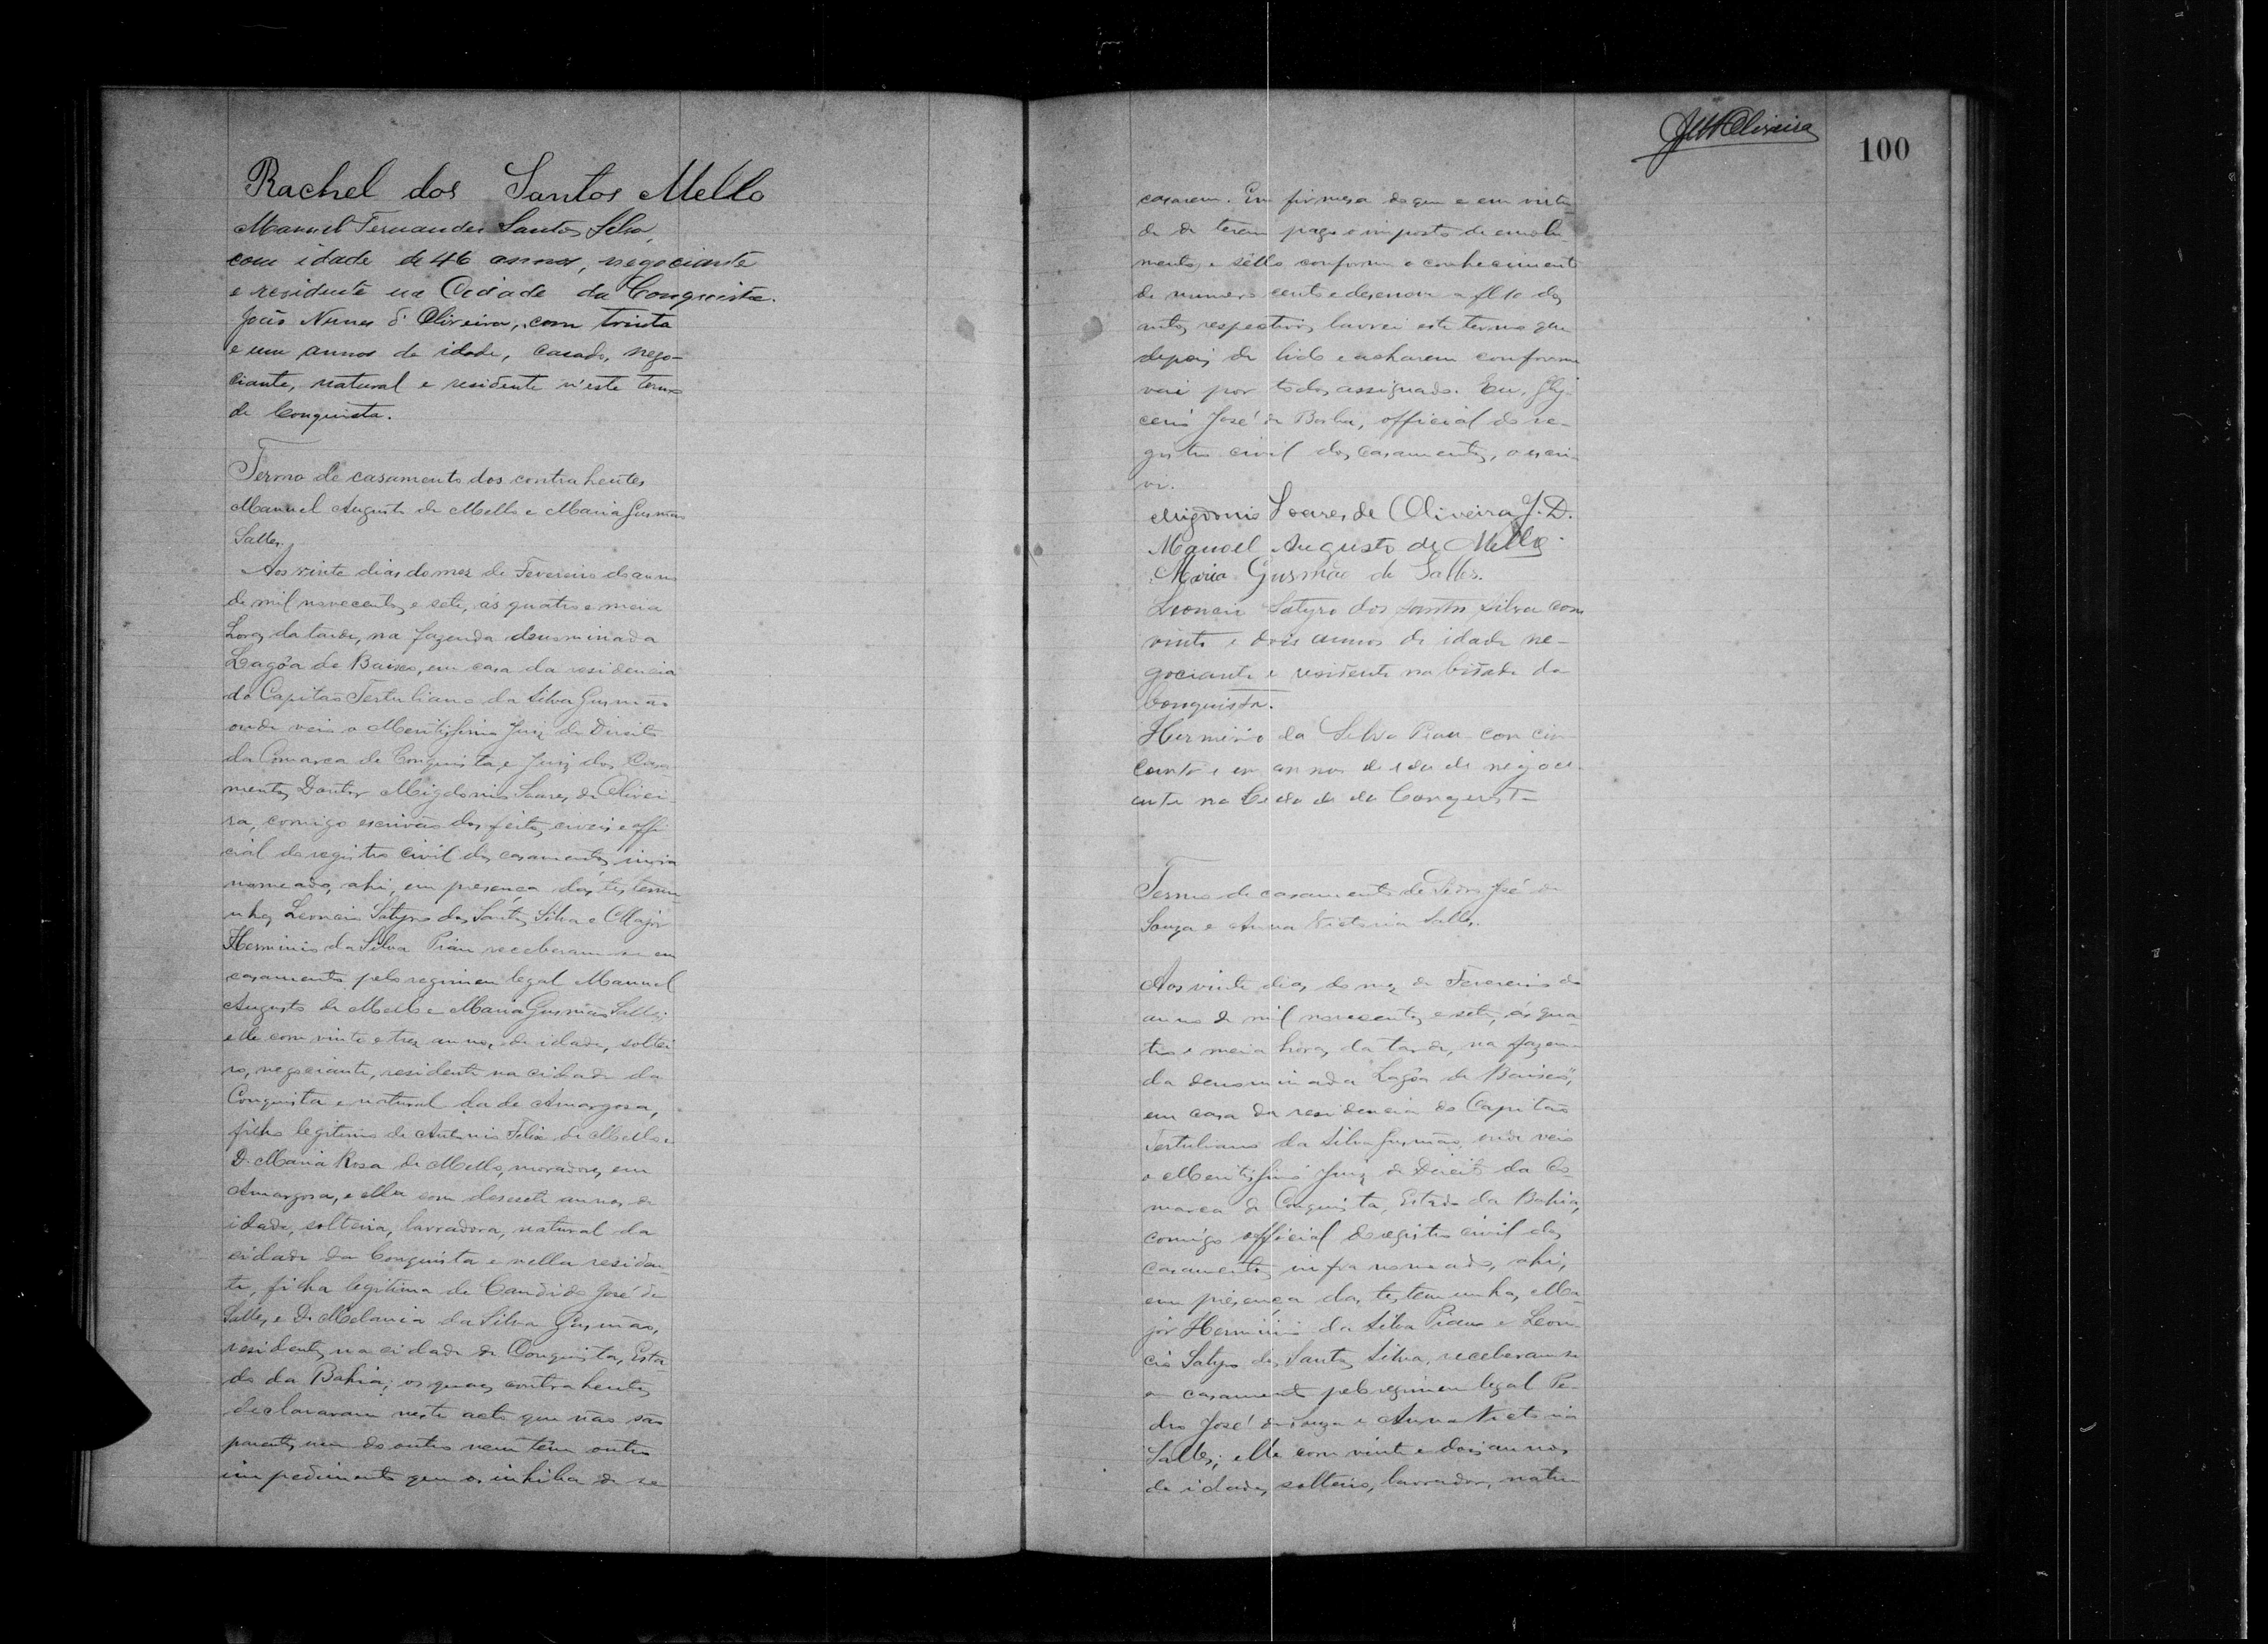 Rachel dos Santos Mello
Manuel Fernandes Santos Silva,
com idade de 46 annos, negociante
e residente na Cidade da Conquista.
João Nunes d'Oliveira, com trinta
e um annos de idade, casado, nego-
ciante, natural e residente n'este termo
de Conquista.
Termo de casamento dos contrahentes
Manuel Augusto de Mello e Maria Gusmão
Salles.
Aos vinte dias do mez de Fevereiro do anno
de mil novecentos e sete, ás quatro e meia
horas da tarde, na fazenda denominada
Lagôa de Baixo, em casa da residencia
do Capitão Tertuliano da Silva Gusmão
onde veio o Meritissimo Juiz de Direito
da Comarca de Conquista, e Juiz dos Casa-
mentos Doutor Migdonio Soares de Olivei-
ra, comigo escrivão dos feitos civeis e offi-
cial do registro civil dos casamentos infra
nomeado, ahi, em presença das testemu-
nhas Leoncio Satyro dos Santos Silva e Major
Herminio da Silva Piau receberam-se em
casamento pelo regimen legal Manuel
Augusto de Mello e Maria Gusmão Salles;
elle com vinte e tres annos de idade, soltei
ro, negociante, residente na cidade da
Conquista e natural da de Amargosa,
filho legitimo de Antonio Felix de Mello e
D. Maria Rosa de Mello, moradores em
Amargosa, e ella com desesete annos de
idade, solteira, lavradora, natural da
cidade da Conquista e nella residen-
te, filha legitima de Candido José de
Salles e D. Melania da Silva Gusmão,
residentes na cidade de Conquista, Esta-
do da Bahia; os quaes contrahentes
declararam neste acto que não são
parentes um do outro nem têm outro
impedimento que os inhiba de se
JMNOliveira
100
casarem. Em firmesa do que e em virtu-
de de terem pago o imposto de emolu-
mentos e sello conforme o conhecimento
de numero cento e desenove a fl 10 dos
autos respectivos, lavrei este termo que
depois de lido e acharem conforme
vai por todos assignado. Eu, Gly-
cerio José da Borba, official do re-
gistro civil dos casamentos, o escre-
vi.
Migdonio Soares de Oliveira J. D.
Manoel Augusto de Mello
Maria Gusmão de Salles.
Leoncio Satyro dos Santos Silva com
vinte e dois annos de idade ne-
gociante e residente na Cidade da
Conquista.
Herminio da Silva Piau com cin-
coenta e um annos de idade negoci-
ante na Cidade da Conquista
Termo de casamento de Pedro José de
Souza e Anna Victoria Salles.
Aos vinte dias do mez de Fevereiro do
anno de mil novecentos e sete, ás qua-
tro e meia horas da tarde, na fazen-
da denominada "Lagôa de Baixo",
em casa da residencia do Capitão
Tertuliano da Silva Gusmão, onde veio
o Meritissimo Juiz de Direito da Co-
marca de Conquista, Estado da Bahia,
comigo official do registro civil dos
casamentos infra nomeado, ahi,
em presença das testemunhas Ma-
jor Herminio da Silva Piau e Leon-
cio Satyro dos Santos Silva, receberam-se
em casamento pelo regimen legal Pe-
dro José de Souza e Anna Victoria
Salles; elle com vinte e dois annos
de idade, solteiro, lavrador, natu